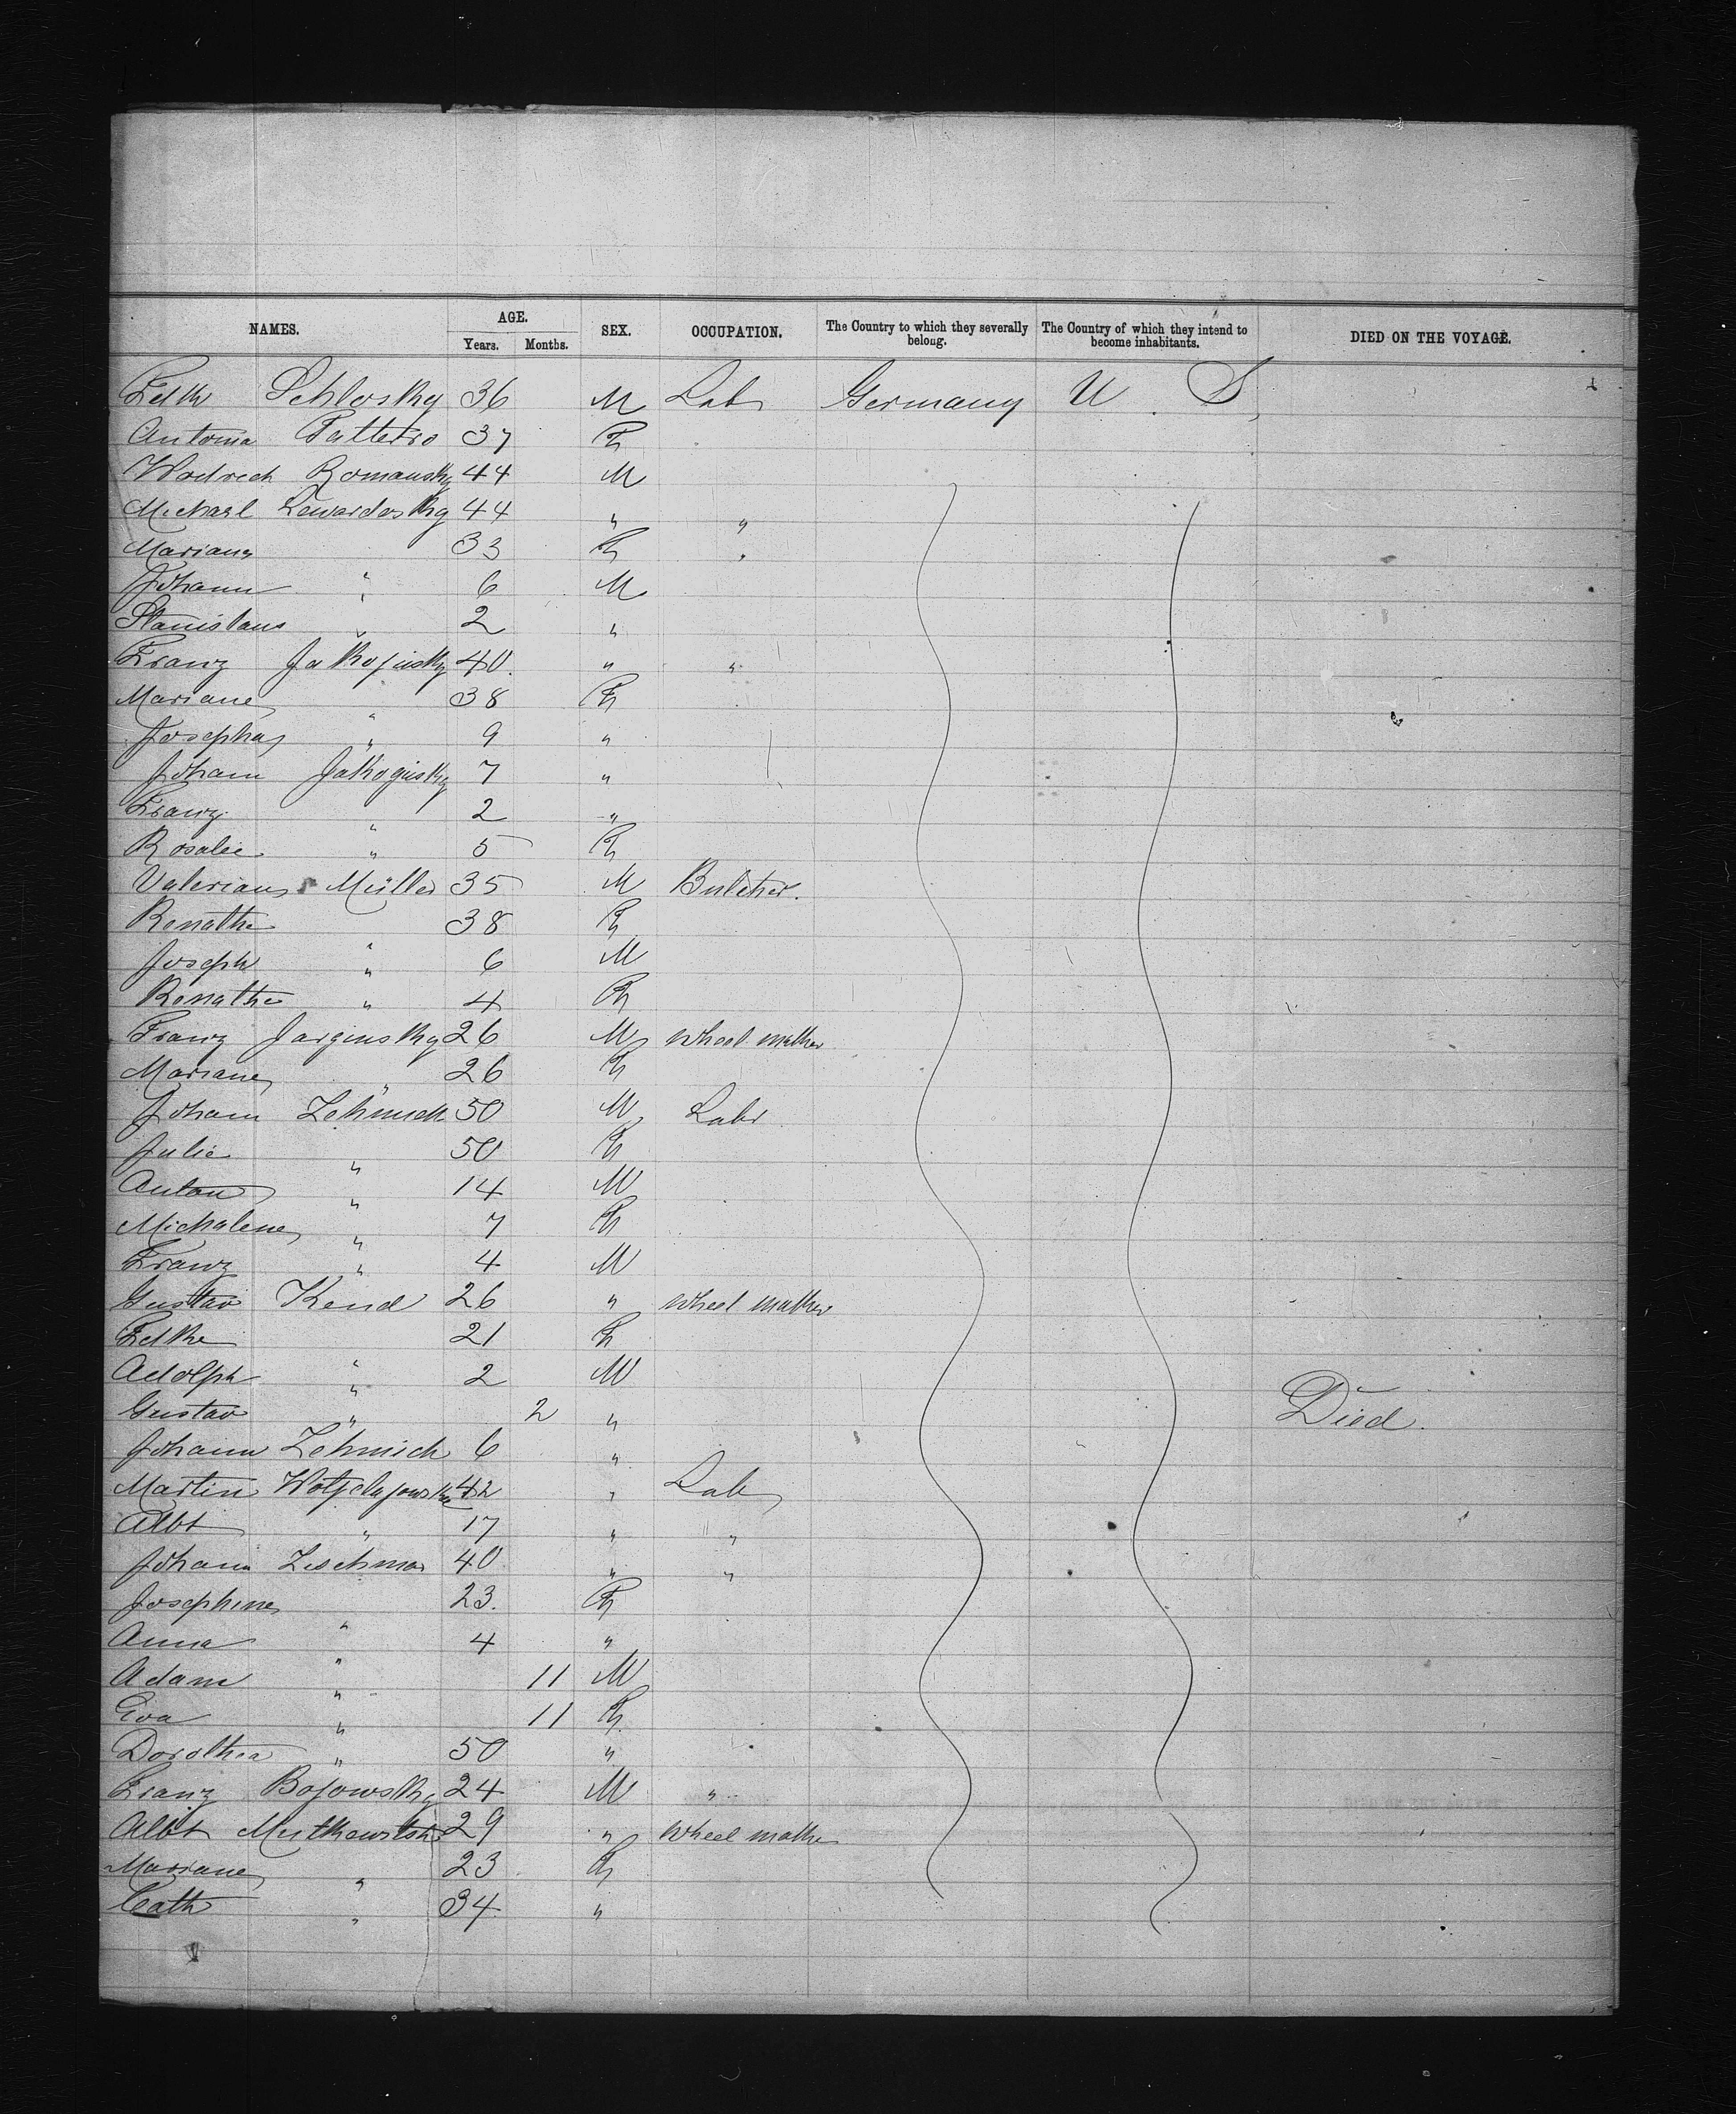 NAMES. AGE. SEX. OCCUPATION. The Country to which they severally belong. The Country of which they intend to become inhabitants. DIED ON THE VOYAGE.
Years. Months.
Schlosky 36 M Lab Germany U. S.
Antonia 37 F
Romansky 44 M
Michael Lewardosky 44 " "
Mariana 33 F "
Johann " 6 M
Stanislaus " 2 "
Franz Jakojinsky 40. " "
Mariane " 38 F
Josepha " 9 "
Joham Jakoginsky 7 "
Franz " 2 "
Rosalie " 5 F
Valerian Müller 35 M Butcher.
Renathe " 38 F
Joseph " 6 M
Renathe " 4 F
Franz Jarginsky 26 M wheel maker
Mariane " 26 F
Joham Lehmick 50 M Labr
Julie " 50 F
Anton " 14 M
Michalene " 7 F
Franz " 4 M
Gustav Kend 26 " wheel maker
" 21 F
Adolph " 2 M
Gustav " 2 " Died.
Johann Lehmich 6 "
Martin 42 " Lab
Albt " 17 " "
Johann Leschmar 40 " "
Josephine " 23. F
Anna " 4 "
Adam " 11 M
Eva " 11 F
Dorothea " 50 "
Franz Bojowsky 24 M "
Albt 29 " wheel make
Mariane " 23 F
Cath " 34 "